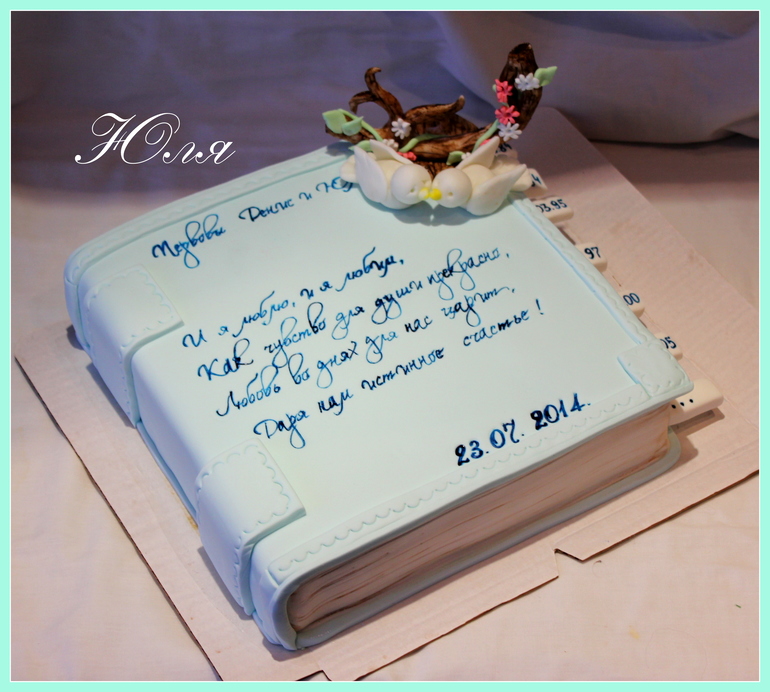 Юля
Первовы Денис и Ю
И я люблю, и я любим,
Как чувство для души прекрасно,
Любовь во днях для нас царит,
Даря нам истинное счастье!
23.07.2014.
03.95
97
00
05
...